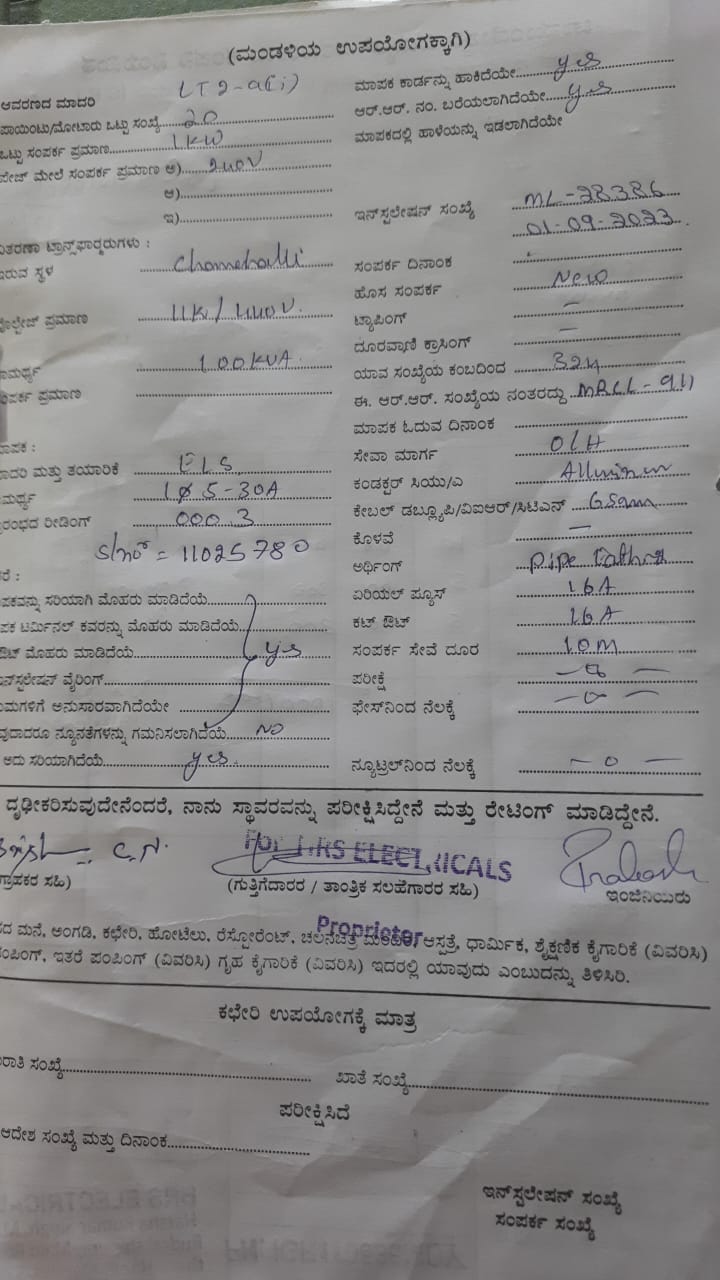 (ಮಂಡಳಿಯ ಉಪಯೋಗಕ್ಕಾಗಿ)
ಆವರಣದ ಮಾದರಿ LT2-a(i)
ಪಾಯಿಂಟು/ಮೋಟಾರು ಒಟ್ಟು ಸಂಖ್ಯೆ 20
ಒಟ್ಟು ಸಂಪರ್ಕ ಪ್ರಮಾಣ 1KW
ಮೇಲೆ ಸಂಪರ್ಕ ಪ್ರಮಾಣ ಅ) 240V
ಆ)
ಇ)
ಇರುವ ಸ್ಥಳ
11K/440V
100KVA
ಮತ್ತು ತಯಾರಿಕೆ ELS
5-30A
ರೀಡಿಂಗ್ 000.3
S/no = 11025780
ಸರಿಯಾಗಿ ಮೊಹರು ಮಾಡಿದೆಯೆ
ಟರ್ಮಿನಲ್ ಕವರನ್ನು ಮೊಹರು ಮಾಡಿದೆಯೆ
ಮೊಹರು ಮಾಡಿದೆಯೆ yes
ವೈರಿಂಗ್
ಅನುಸಾರವಾಗಿದೆಯೇ
ನ್ಯೂನತೆಗಳನ್ನು ಗಮನಿಸಲಾಗಿದೆಯೆ NO
ಅದು ಸರಿಯಾಗಿದೆಯೆ yes
ಮಾಪಕ ಕಾರ್ಡನ್ನು ಹಾಕಿದೆಯೇ yes
ಆರ್.ಆರ್. ನಂ. ಬರೆಯಲಾಗಿದೆಯೇ yes
ಮಾಪಕದಲ್ಲಿ ಹಾಳೆಯನ್ನು ಇಡಲಾಗಿದೆಯೇ
ಇನ್‌ಸ್ಟಲೇಷನ್ ಸಂಖ್ಯೆ ML-28386
01-09-2023
ಸಂಪರ್ಕ ದಿನಾಂಕ
ಹೊಸ ಸಂಪರ್ಕ New
ಟ್ಯಾಪಿಂಗ್ —
ದೂರವಾಣಿ ಕ್ರಾಸಿಂಗ್ —
ಯಾವ ಸಂಖ್ಯೆಯ ಕಂಬದಿಂದ
ಈ. ಆರ್.ಆರ್. ಸಂಖ್ಯೆಯ ನಂತರದ್ದು
ಮಾಪಕ ಓದುವ ದಿನಾಂಕ
ಸೇವಾ ಮಾರ್ಗ O/H
ಕಂಡಕ್ಟರ್ ಸಿಯು/ಎ
ಕೇಬಲ್ ಡಬ್ಲ್ಯೂಪಿ/ವಿಐಆರ್/ಸಿಟಿಎಸ್
ಕೊಳವೆ —
ಅರ್ಥಿಂಗ್ pipe
ಏರಿಯಲ್ ಫ್ಯೂಸ್ 16A
ಕಟ್ ಔಟ್ 16A
ಸಂಪರ್ಕ ಸೇವೆ ದೂರ 10M
ಪರೀಕ್ಷೆ —0—
ಫೇಸ್‌ನಿಂದ ನೆಲಕ್ಕೆ —0—
ನ್ಯೂಟ್ರಲ್‌ನಿಂದ ನೆಲಕ್ಕೆ —0—
ದೃಢೀಕರಿಸುವುದೇನೆಂದರೆ, ನಾನು ಸ್ಥಾವರವನ್ನು ಪರೀಕ್ಷಿಸಿದ್ದೇನೆ ಮತ್ತು ರೇಟಿಂಗ್ ಮಾಡಿದ್ದೇನೆ.
C.N. HRS ELECTRICALS Prakash
(ಗ್ರಾಹಕರ ಸಹಿ) (ಗುತ್ತಿಗೆದಾರರ / ತಾಂತ್ರಿಕ ಸಲಹೆಗಾರರ ಸಹಿ) ಇಂಜಿನಿಯರು
Proprietor
ಮನೆ, ಅಂಗಡಿ, ಕಛೇರಿ, ಹೋಟೆಲು, ರೆಸ್ಟೋರೆಂಟ್, ಚಲನಚಿತ್ರ ಆಸ್ಪತ್ರೆ, ಧಾರ್ಮಿಕ, ಶೈಕ್ಷಣಿಕ ಕೈಗಾರಿಕೆ (ವಿವರಿಸಿ)
ಇತರೆ ಪಂಪಿಂಗ್ (ವಿವರಿಸಿ) ಗೃಹ ಕೈಗಾರಿಕೆ (ವಿವರಿಸಿ) ಇದರಲ್ಲಿ ಯಾವುದು ಎಂಬುದನ್ನು ತಿಳಿಸಿರಿ.
ಕಛೇರಿ ಉಪಯೋಗಕ್ಕೆ ಮಾತ್ರ
ಸಂಖ್ಯೆ ಖಾತೆ ಸಂಖ್ಯೆ
ಪರೀಕ್ಷಿಸಿದೆ
ಆದೇಶ ಸಂಖ್ಯೆ ಮತ್ತು ದಿನಾಂಕ
ಇನ್‌ಸ್ಟಲೇಷನ್ ಸಂಖ್ಯೆ
ಸಂಪರ್ಕ ಸಂಖ್ಯೆ